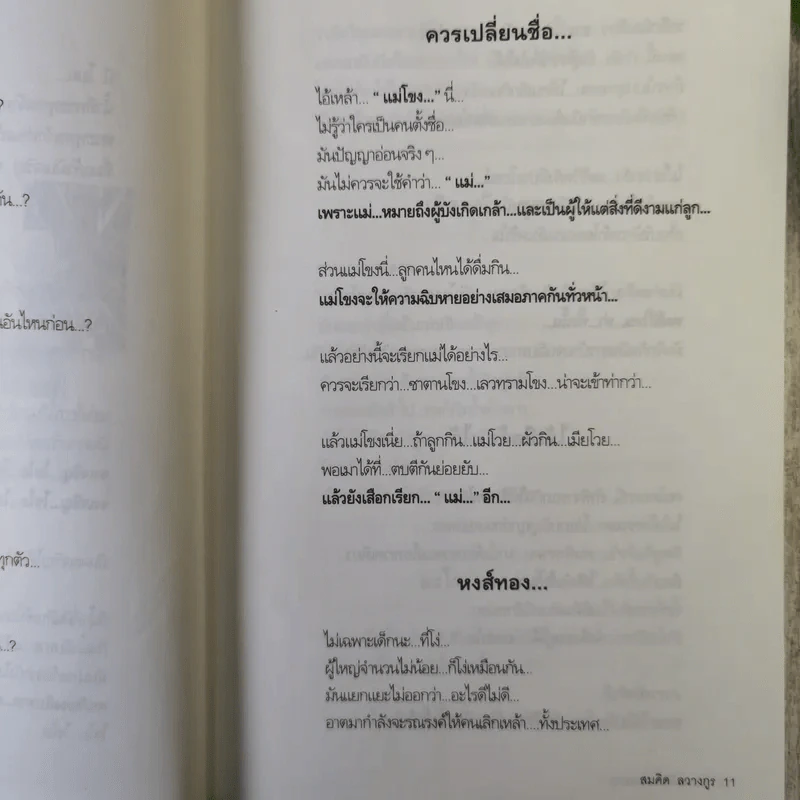 ?
น...?
นอันไหนก่อน...?
ทุกตัว...
...?
ควรเปลี่ยนชื่อ...
ไอ้เหล้า... “ แม่โขง...” นี่...
ไม่รู้ว่าใครเป็นคนตั้งชื่อ...
มันปัญญาอ่อนจริง ๆ...
มันไม่ควรจะใช้คำว่า... “ แม่...”
เพราะแม่...หมายถึงผู้บังเกิดเกล้า...และเป็นผู้ให้แต่สิ่งที่ดีงามแก่ลูก...
ส่วนแม่โขงนี่...ลูกคนไหนได้ดื่มกิน...
แม่โขงจะให้ความฉิบหายอย่างเสมอภาคกันทั่วหน้า...
แล้วอย่างนี้จะเรียกแม่ได้อย่างไร...
ควรจะเรียกว่า...ซาตานโขง...เลวทรามโขง...น่าจะเข้าท่ากว่า...
แล้วแม่โขงเนี่ย...ถ้าลูกกิน...แม่โวย...ผัวกิน...เมียโวย...
พอเมาได้ที่...ตบตีกันย่อยยับ...
แล้วยังเสือกเรียก... “ แม่...” อีก...
หงส์ทอง...
ไม่เฉพาะเด็กนะ...ที่โง่...
ผู้ใหญ่จำนวนไม่น้อย...ก็โง่เหมือนกัน...
มันแยกแยะไม่ออกว่า...อะไรดีไม่ดี...
อาตมากำลังจะรณรงค์ให้คนเลิกเหล้า...ทั้งประเทศ...
สมคิด ลวางกูร 11